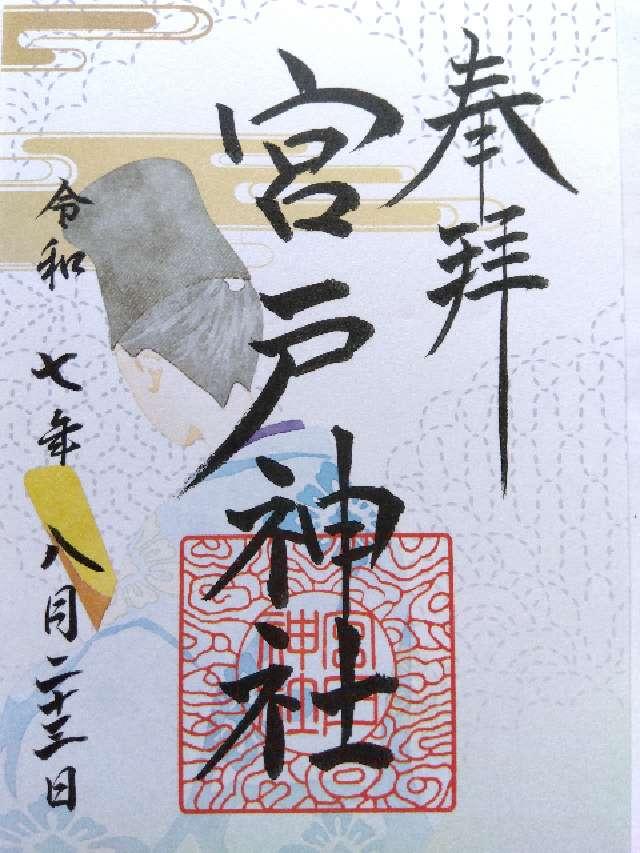 奉拝
宮戸神社
宮戸神社
令和七年八月二十三日